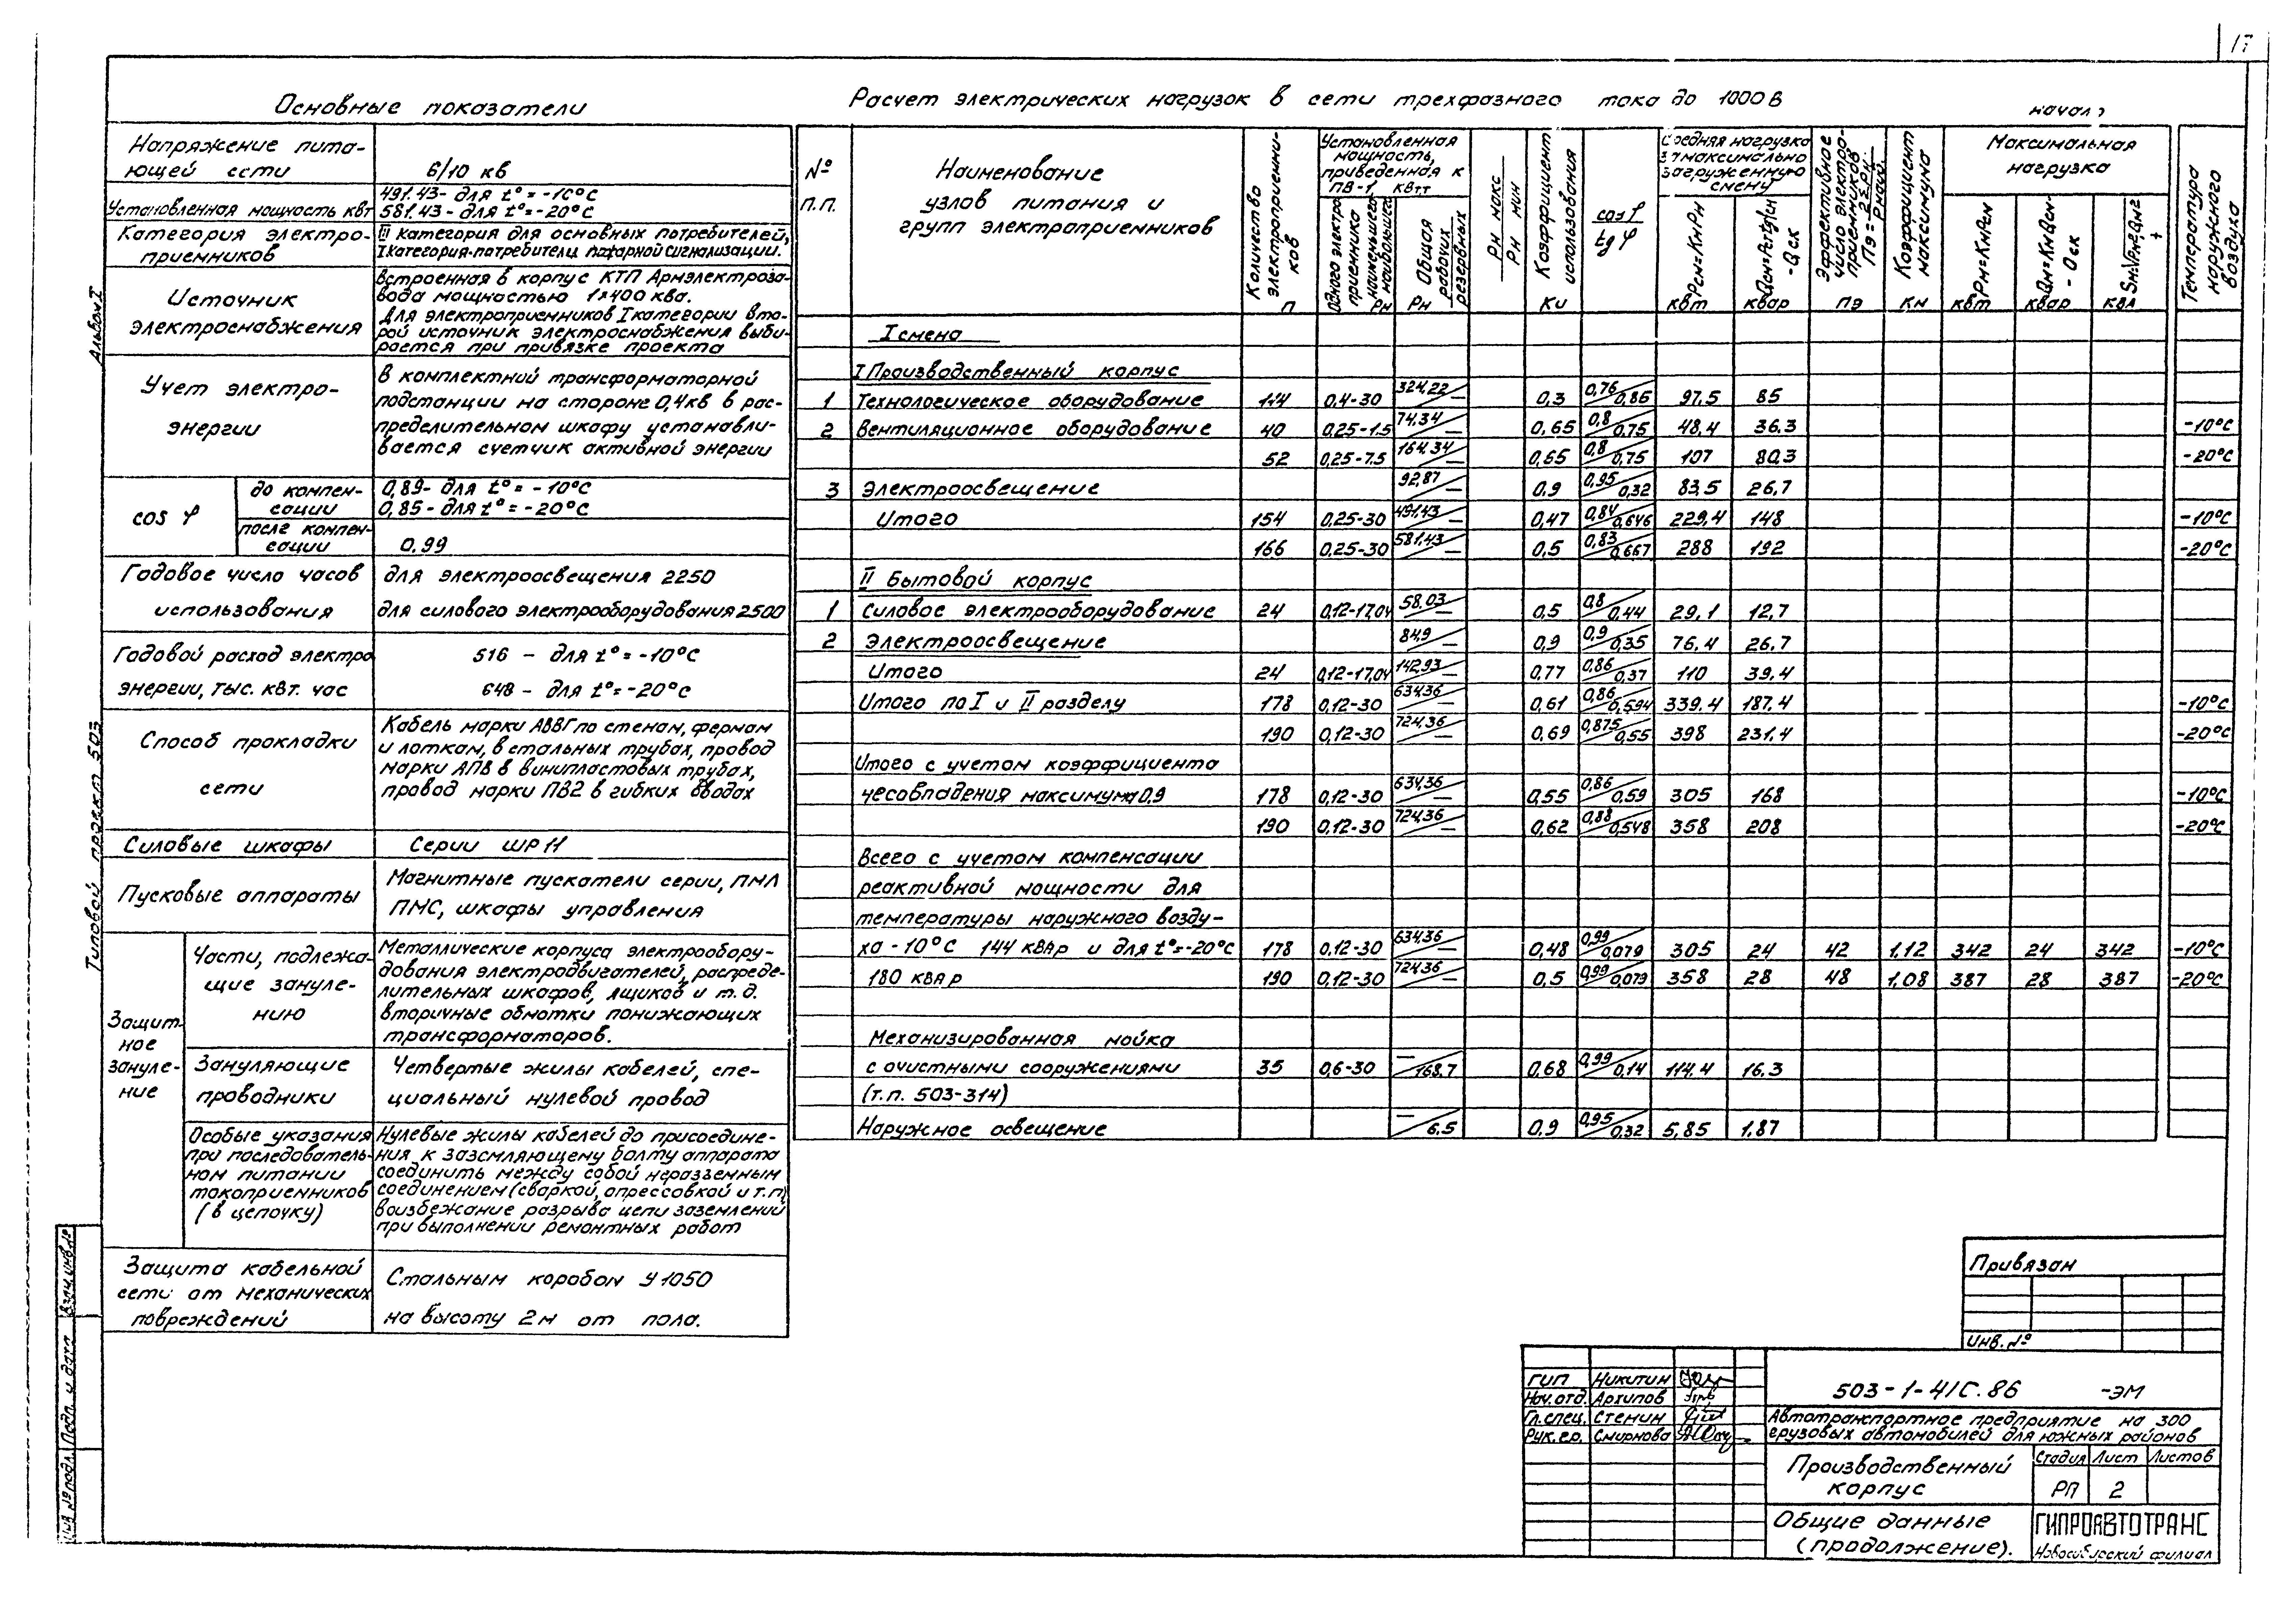 17
Основные показатели
Напряжение пита-
ющей сети
6/10 кв
Установленная мощность квт
491.43- для t° = -10°С
581.43- для t° = -20°С
Категория электро-
приемников
III Категория для основных потребителей,
I категория-потребители пожарной сигнализации.
Источник
электроснабжения
Встроенная в корпус КТП Армэлектроза-
вода мощностью 1х400 ква.
Для электроприемников I категории вто-
рой источник электроснабжения выби-
рается при привязке проекта
Учет электро-
энергии
В комплектной трансформаторной
подстанции на стороне 0,4кв в рас-
пределительном шкафу устанавли-
вается счетчик активной энергии
cos φ
до компен-
сации
0,89- для t° = -10°С
0,85- для t° = -20°С
после компен-
сации
0.99
Годовое число часов
использования
для электроосвещения 2250
для силового электрооборудования 2500
Годовой расход электро
энергии, тыс. квт. час
516 - для t° = -10°С
648 - для t° = -20°С
Способ прокладки
сети
Кабель марки АВВГ по стенам, фермам
и лоткам, в стальных трубах, провод
марки АПВ в винипластовых трубах,
провод марки ПВ2 в гибких вводах
Силовые шкафы
Серии ШР11
Пусковые аппараты
Магнитные пускатели серии, ПМЛ
ПМС, шкафы управления
Защит-
ное
зануле-
ние
Части, подлежа-
щие зануле-
нию
Металлические корпуса электрообору-
дования электродвигателей, распреде-
лительных шкафов, ящиков и т.д.
вторичные обмотки понижающих
трансформаторов.
Зануляющие
проводники
Четвертые жилы кабелей, спе-
циальный нулевой провод
Особые указания
при последователь-
ном питании
токоприемников
(в цепочку)
Нулевые жилы кабелей до присоедине-
ния к заземляющему болту аппарата
соединить между собой неразъемным
соединением (сваркой, опрессовкой и т.п)
воизбежание разрыва цепи заземлений
при выполнении ремонтных работ
Защита кабельной
сети от механических
повреждений
Стальным коробом У1050
на высоту 2м от пола.
Расчет электрических нагрузок в сети трехфазного тока до 1000в
начал
№
п.п.
Наименование
узлов питания и
групп электроприемников
Количество
электроприемни-
ков
п
Установленная
мощность,
приведенная к
ПВ-1, квтт
Одного электро
приемника
наименьшего
наибольшего
Рн
Общая
рабочих
резервных
Рн
Рн макс
Рн мин
Коэффициент
использования
Ки
cos φ
tg φ
Средняя нагрузка
з максимально
загруженную
смену
Рсм=КиРн
квт
Qсм=Рсмtgφсм
-Qск
квар
Эффективное
число электро-
приемников
Пэ= 2ΣРн
Рнаиб.
пэ
Коэффициент
максимума
Км
Максимальная
нагрузка
Рм=КмРсм
квт
Qм=КмQсм-
- Qск
квар
Sм=√Рм²+Qм²
ква
Температура
наружного
воздуха
I смена
I Производственный корпус
1 Технологическое оборудование 114 0,4-30 324,22 — 0,3 0,76 0,86 97.5 85
2 Вентиляционное оборудование 40 0,25-1.5 74,34 — 0,65 0,8 0,75 48.4 36.3 -10°С
52 0,25-7.5 164.34 — 0,65 0,8 0,75 107 80,3 -20°С
3 Электроосвещение 92,87 — 0.9 0,95 0,32 83.5 26.7
Итого 154 0,25-30 491.43 — 0,47 0,84 0,646 229,4 148 -10°С
166 0,25-30 581,43 — 0,5 0,83 0,667 288 192 -20°С
II Бытовой корпус
1 Силовое электрооборудование 24 0,12-17,04 58,03 — 0,5 0,8 0,44 29,1 12,7
2 Электроосвещение 84,9 — 0,9 0,9 0,35 76.4 26.7
Итого 24 0,12-17,04 142,93 — 0,77 0,86 0,37 110 39.4
Итого по I и II разделу 178 0,12-30 634,36 — 0,61 0,86 0,594 339.4 187.4 -10°С
190 0,12-30 724,36 — 0,69 0,875 0,55 398 231.4 -20°С
Итого с учетом коэффициента
несовпадения максимума 0,9 178 0,12-30 634,36 — 0,55 0,86 0,59 305 168 -10°С
190 0,12-30 724,36 — 0,62 0,88 0,548 358 208 -20°С
Всего с учетом компенсации
реактивной мощности для
температуры наружного возду-
ха -10°С 144 квар и для t°=-20°С 178 0,12-30 634,36 — 0,48 0,99 0,079 305 24 42 1.12 342 24 342 -10°С
180 квар 190 0,12-30 724,36 — 0,5 0,99 0,079 358 28 48 1.08 387 28 387 -20°С
Механизированная мойка
с очистными сооружениями 35 0,6-30 — 168.7 0,68 0,99 0,14 114.4 16.3
(т.п. 503-314)
Наружное освещение — 6.5 0,9 0,95 0,32 5,85 1.87
Альбом I
Типовой проект 503
Взам. инв.№
Подп. и дата
Инв №подл.
Привязан
Инв. №
ГИП Никитин
Нач.отд. Архипов
Гл.спец. Стенин
Рук.гр. Смирнова
503-1-41С.86 -ЭМ
Автотранспортное предприятие на 300
грузовых автомобилей для южных районов
Производственный
корпус
Стадия Лист Листов
РП 2
Общие данные
(продолжение).
ГИПРОАВТОТРАНС
Новосибирский филиал